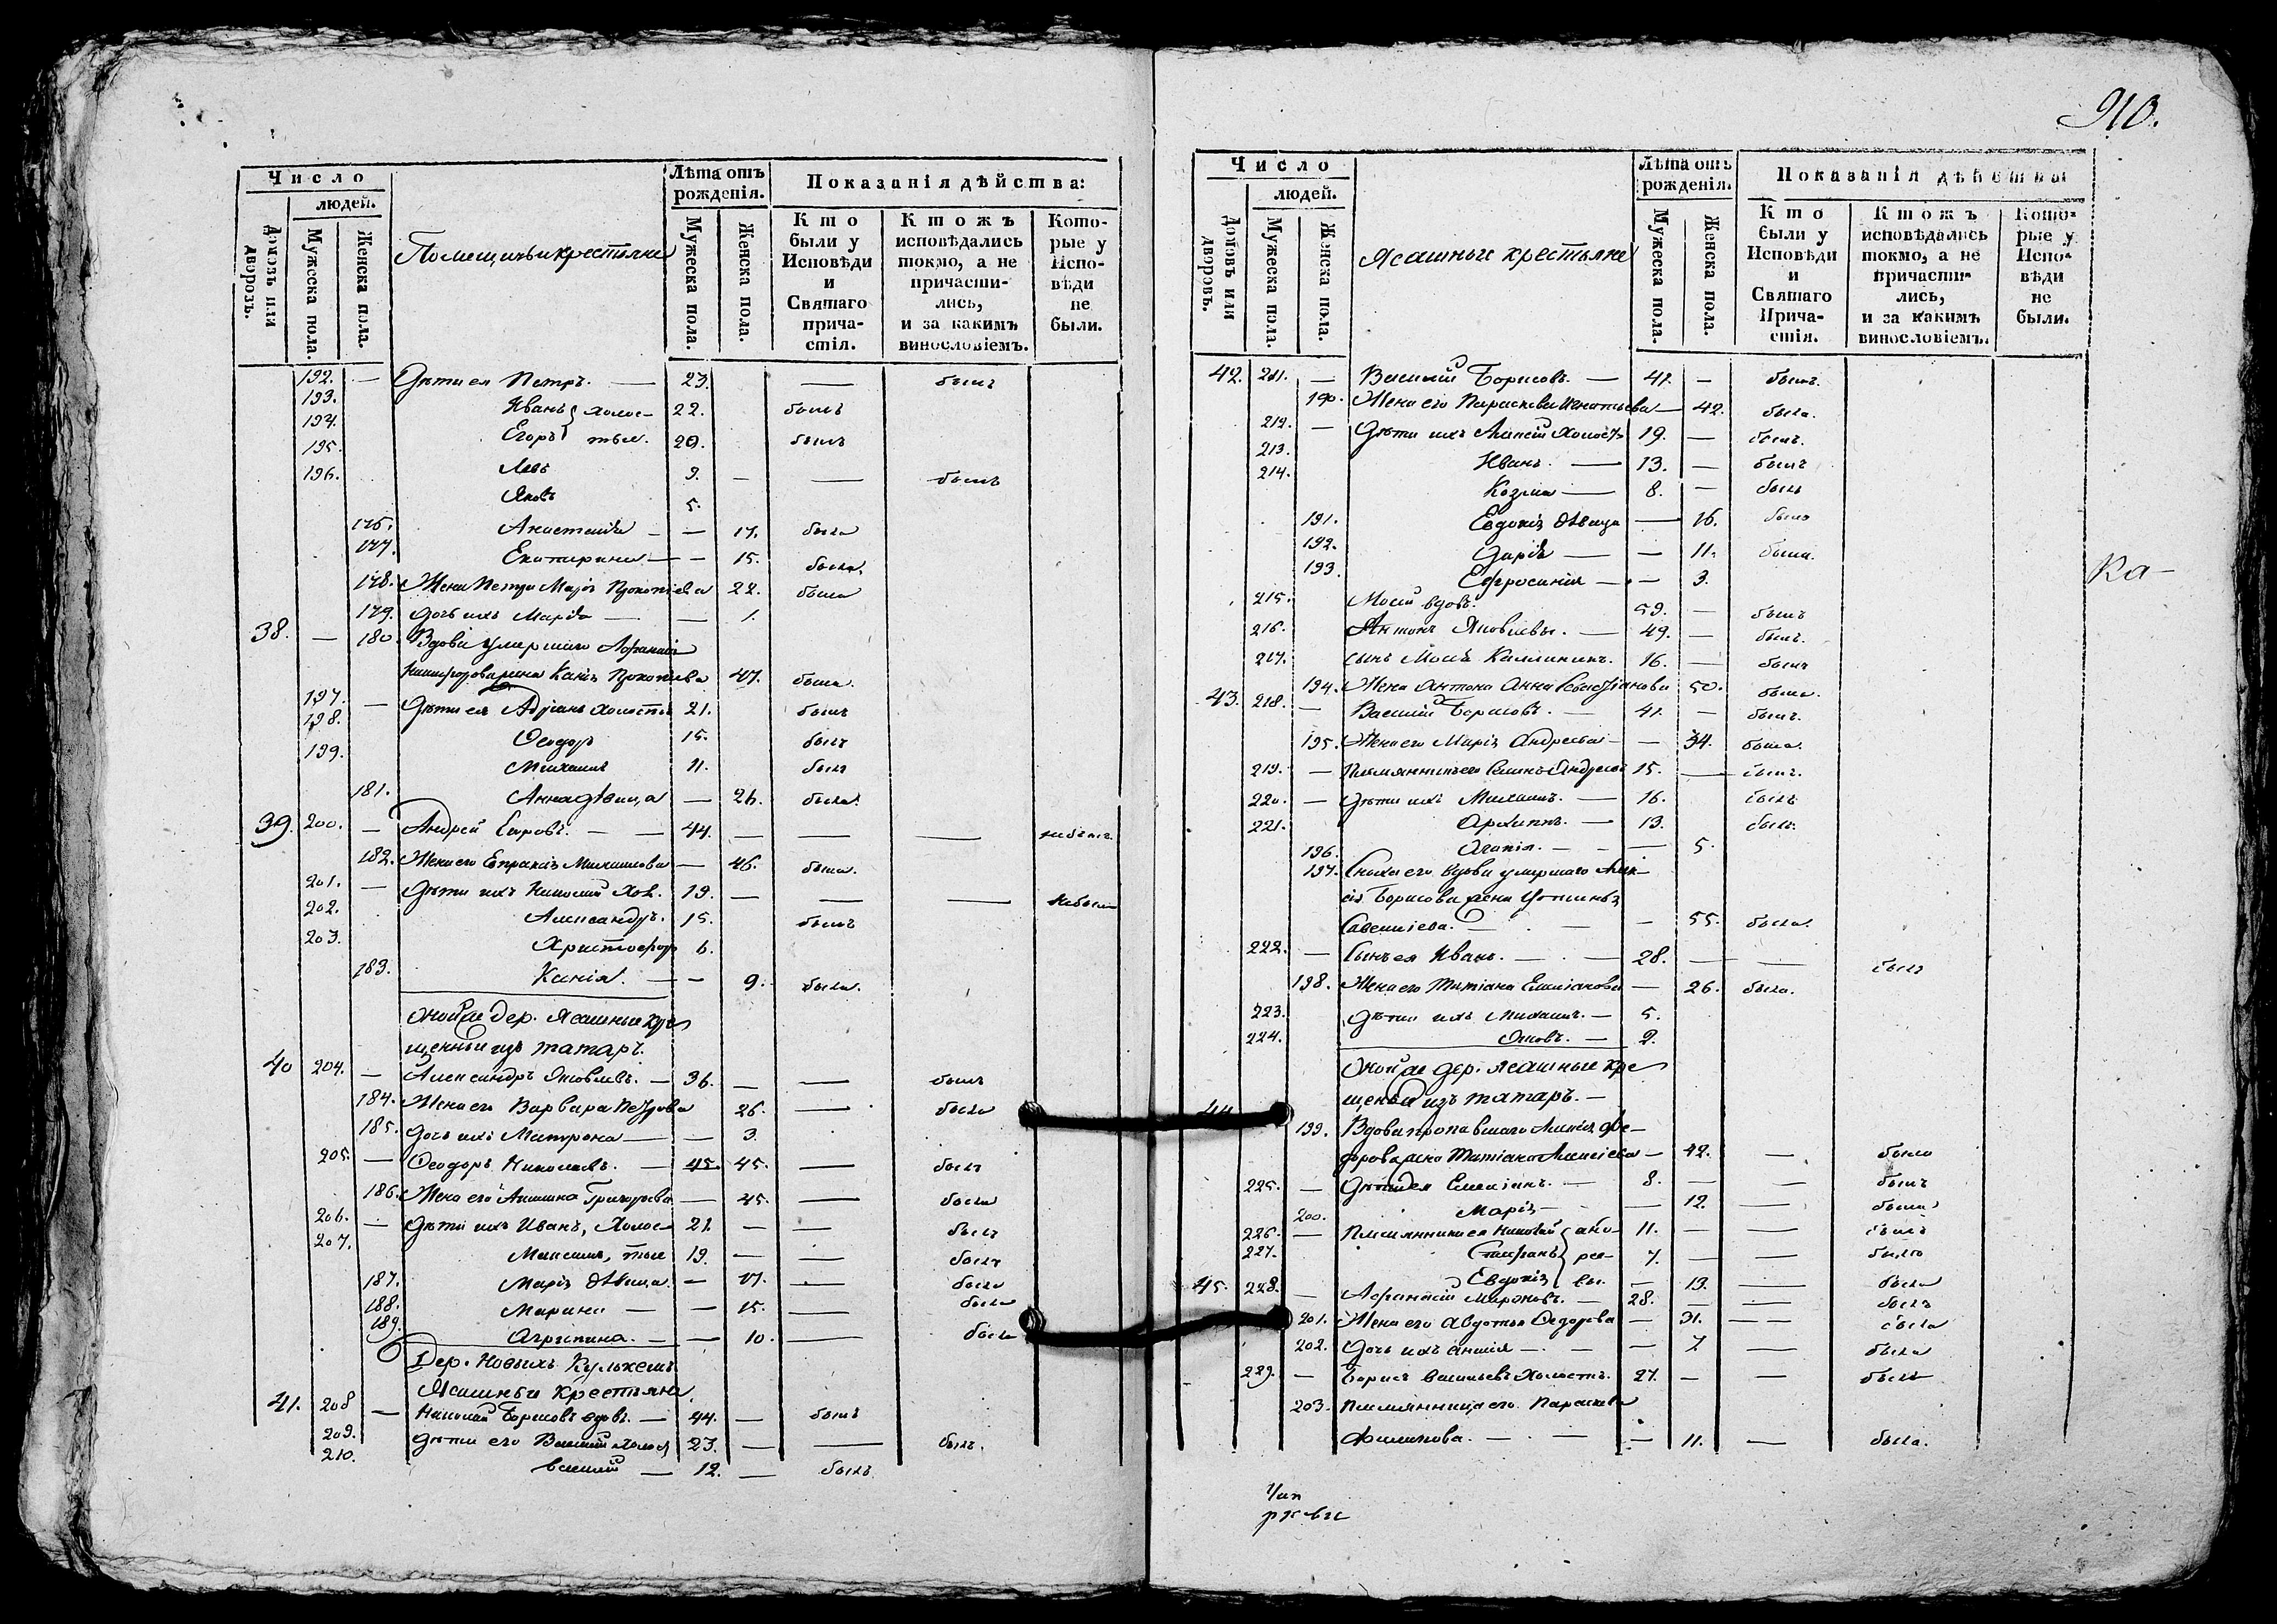 Число
людей.
Домовъ или дворовъ.
Мужеска пола.
Женска пола.
Помещичьи крестьяне
Лѣта отъ рожденія.
Мужеска пола.
Женска пола.
Показанія дѣйства:
Кто были у Исповѣди и Святаго причастія.
Ктожъ исповѣдались токмо, а не причастились, и за какимъ винословіемъ.
Которые у Исповѣди не были.
192. — Дѣти ея Петръ. — 23. — былъ
193. Иванъ холос- 22. былъ
194. Егоръ тые. 20. былъ
195. Левъ 9. — — былъ
196. Яковъ 5.
176. Анастасія — — 17. была
177. Екатирина — — 15. была.
178. Жена Петра Марія Прокопіева 22. была
179. Дочь ихъ Марѳа — — 1.
38. — 180. Вдова умершаго Афанасія
Ксенія Прокопіева 47. была.
197. — Дѣти ея Адріанъ холостъ 21. былъ
198. Ѳеодоръ 15. былъ
199. Михаилъ 11. былъ
181. Анна дѣвица — 26. была.
39. 200. — Андрей Егоровъ. — — 44. — — — небылъ.
182. Жена его Евпраксія Михаилова — 46. была.
201. — Дѣти ихъ Николай хол. 19. — — — небылъ
202. Александръ. 15. былъ
203. Христофоръ 6.
183. Ксенія. — — 9. была.
Оной же дер. Ясашные кре
щеныи изъ татаръ.
40 204. — Александръ Яковлевъ. — 36. — — былъ
184. Жена его Варвара Петрова 26. — была
185. Дочь ихъ Матрона — — 3.
205. — Ѳеодоръ Николаевъ. — 45. 45. — былъ
186. Жена его Акилина Григорьева — 45. — была
206. — Дѣти ихъ Иванъ, холос- 21. — — былъ
207. Максимъ, тые 19. — — былъ
187. Марія дѣвица. — 17. — была
188. Марина — — 15. — была
189. Агрипина. — — 10. — была
Дер. Новыхъ Кулькешъ
Ясашныи крестьяна.
41. 208 — Николай Борисовъ вдовъ. — 44. — былъ
209. Дѣти его Василій холост 23. — — былъ.
210. Василій — 12. — былъ.
910.
Число
людей.
Домовъ или дворовъ.
Мужеска пола.
Женска пола.
Ясашные крестьяне
Лѣта отъ рожденія.
Мужеска пола.
Женска пола.
Показанія дѣйства
Кто были у Исповѣди и Святаго Причастія.
Ктожъ исповѣдались токмо, а не причастились, и за какимъ винословіемъ.
Которые у Исповѣди не были.
42. 211. — Василій Борисовъ. — 41. — былъ.
190. Жена его Параскева Игнатьева — 42. была.
212. — Дѣти ихъ Алексѣй холостъ 19. — былъ.
213. Иванъ. — 13. — былъ
214. Козма — 8. — былъ
191. Евдокія дѣвица — 16. была
192. Дарія — — 11. была.
193. Ефросинія — — 3.
215. Моисей вдовъ. 59. — былъ
216. Антонъ Яковлевы. — 49. — былъ.
217. сынъ Моисея Калинникъ. 16. — былъ
194. Жена Антона Анна Севастіанова 50. была.
43. 218. — Василій Борисовъ. — 41. — былъ.
195. Жена его Марія Андреева — — 34. была.
219. — Племянникъ его Андреевъ 15. — былъ.
220. — Дѣти ихъ Михаилъ. — 16. былъ
221. Архиппъ. — 13. былъ.
196. Агапія. — — — 5.
197. Сноха его вдова умершаго Алек-
сія Борисова жена Устинья
Савельева. — — — 55. была.
222. — Сынъ ея Иванъ. — — 28. — — былъ
198. Жена его Татіана Емеліанова — 26. была.
223. Дѣти ихъ Михаилъ. — 5.
224. Яковъ. — 2.
Оной же дер. ясашные кре
щеныи изъ татаръ. —
44.
199. Вдова пропавшаго Алексія Ѳе-
дорова жена Татіана Алексіева — 42. — была
225. — Дѣти ея Емеліанъ. — 8. — — былъ
200. Марія — — 12. — была
226. — Племянники ея Николай 11. — — былъ
227. Стефанъ 7. — — былъ
Евдокія — 13. — была
45. 228. — Афанасій Мироновъ. — 28. — — былъ
201. Жена его Авдотья Ѳедорова — 31. — — была
202. Дочь ихъ — — — 7 — была
229. — Борисъ Васильевъ холостъ. 27. — — былъ
203. Племянница его Параскева
Филипова. — — — — 11. — была.
Ка-